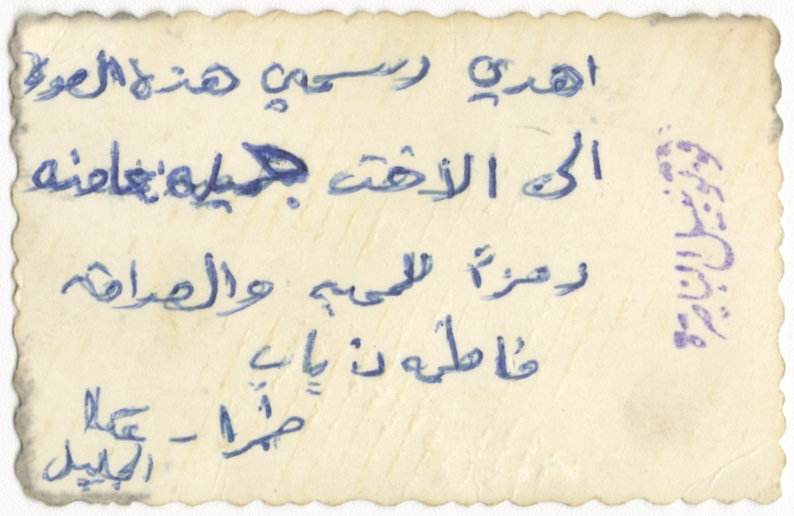 اهدي رسمي هذه الصورة
الى الاخت جميله نعامنه
رمزاً للمحبه والصداقه
فاطمه ذياب
طمرا - عكا
الجليل